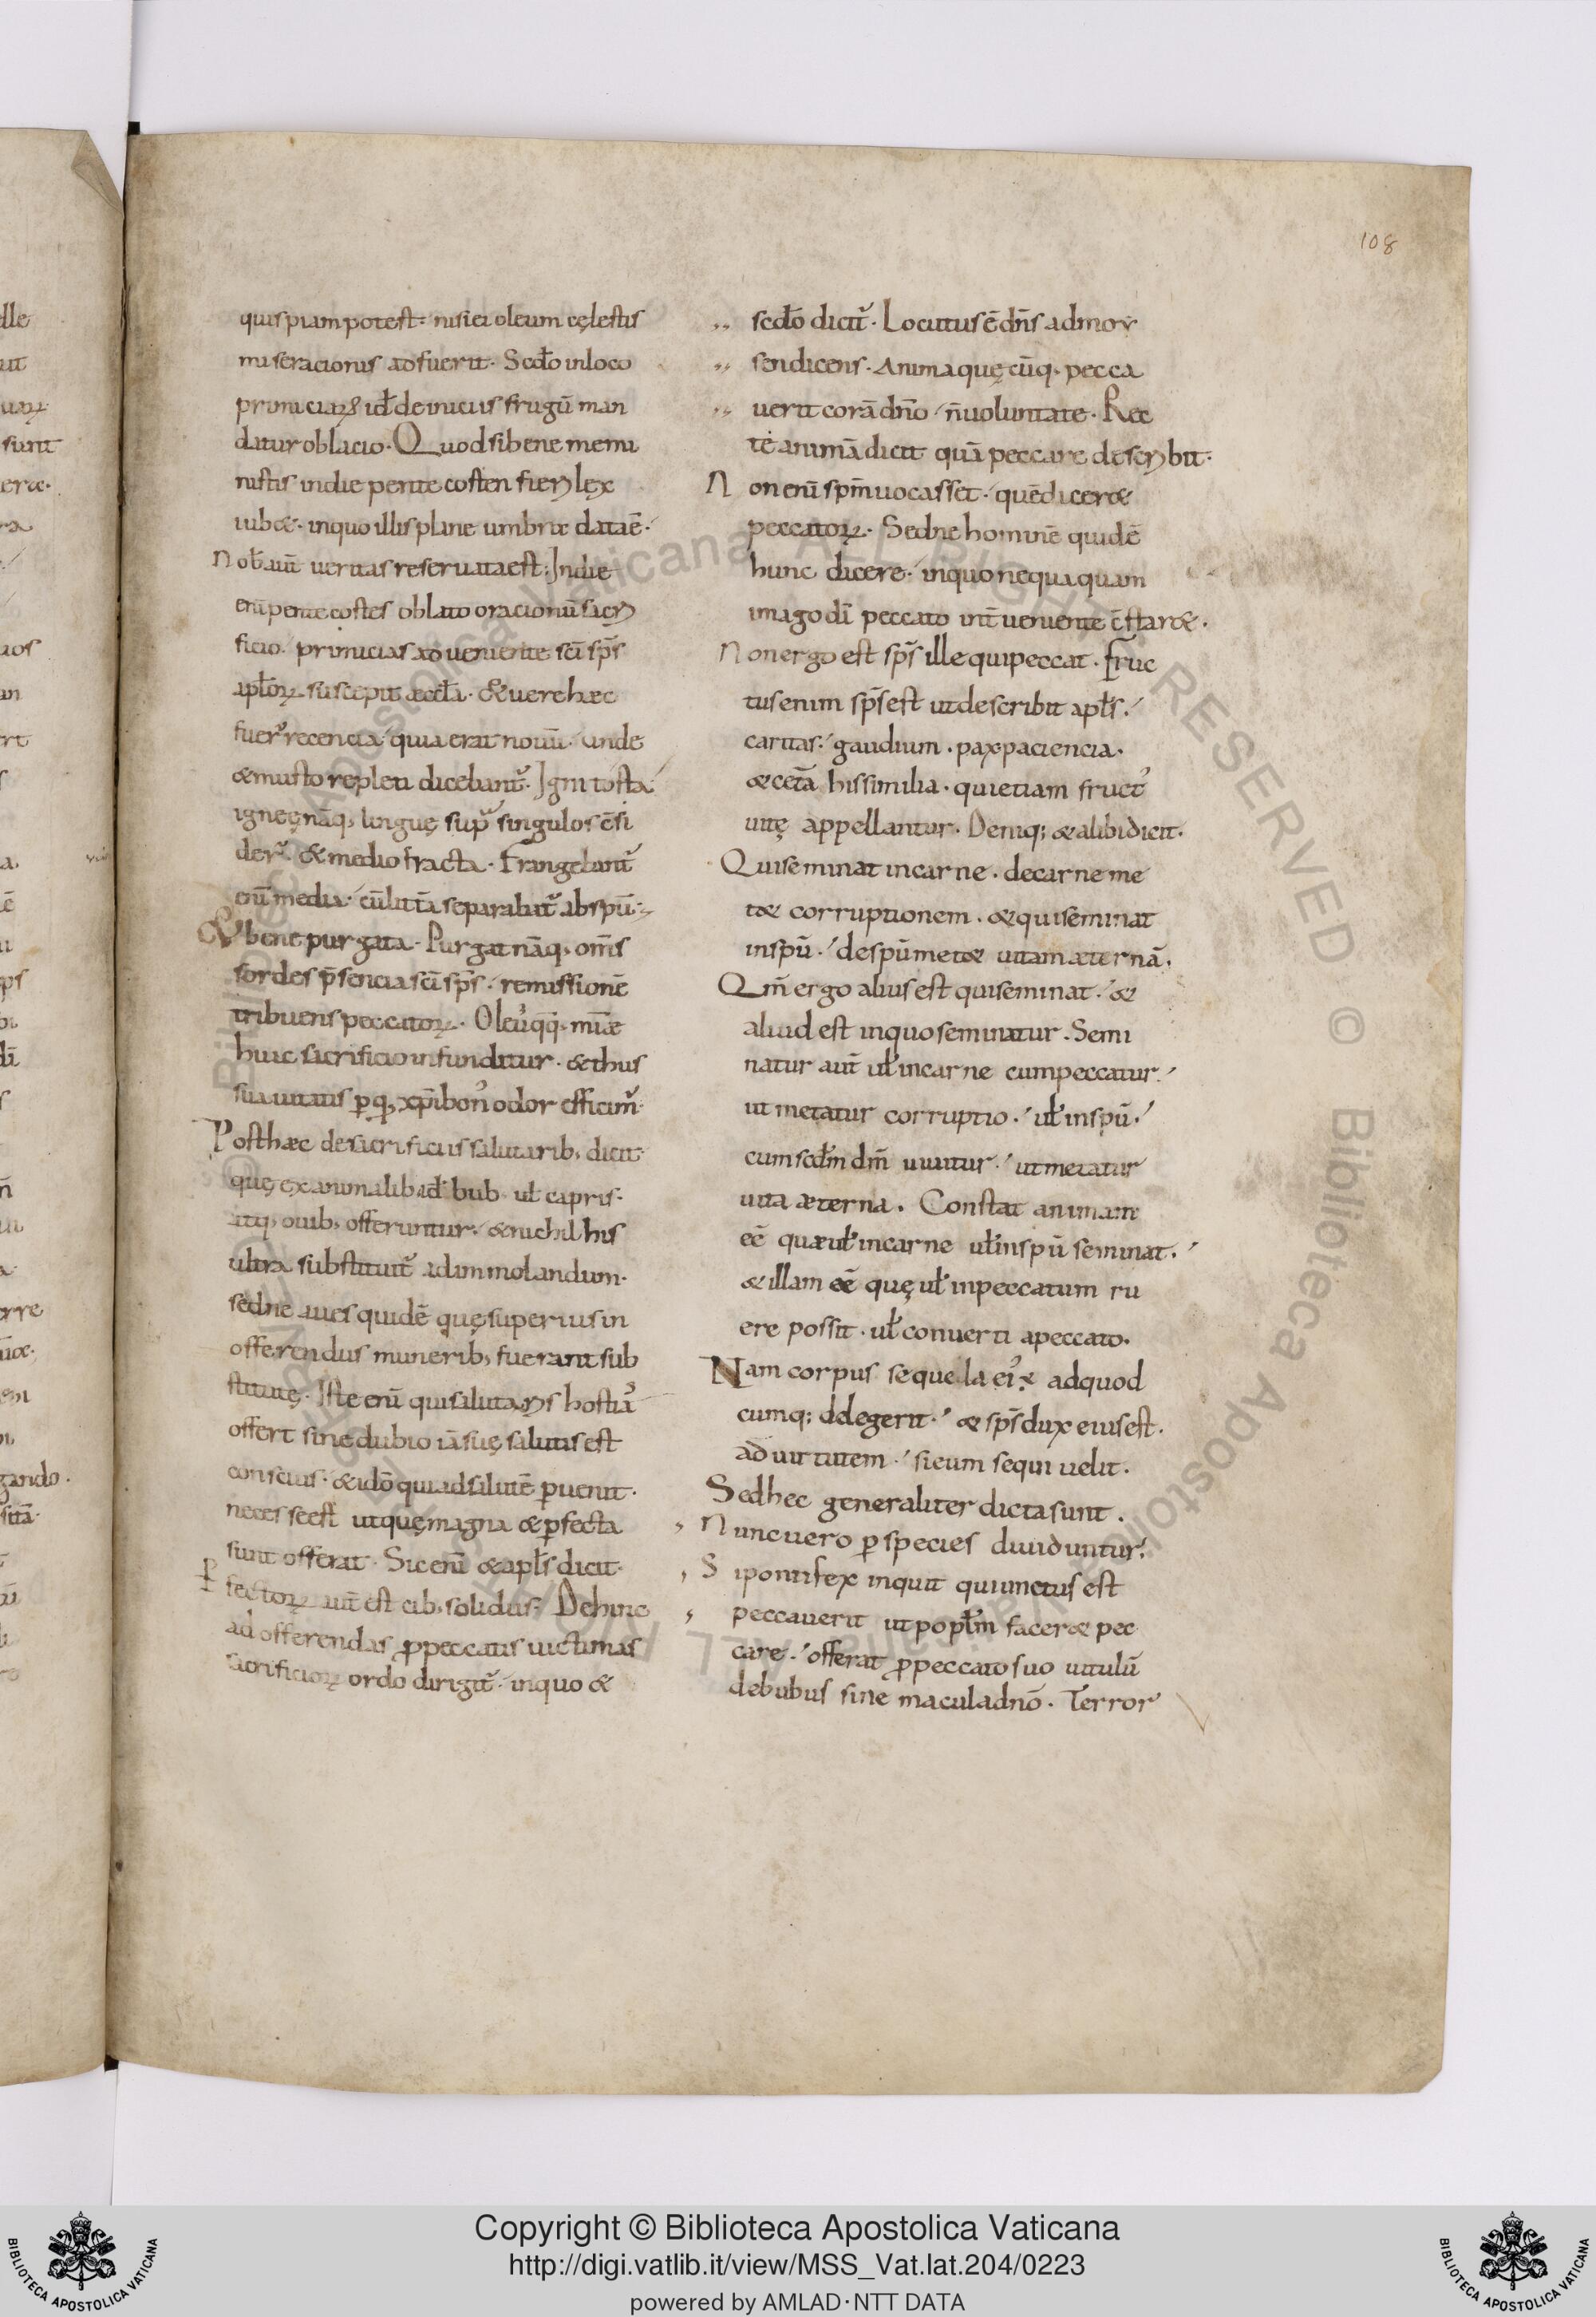 108
quispiam potest· nisi ei oleum cęlestis
miseracionis adfuerit· Scdo in loco
primiciarꝝ id de iniciis frugū man
datur oblacio· Quod si bene memi
nistis in die pentecosten fieri lex
iubet· in quo illis plane umbra data ē·
Nob aut̄ ueritas reseruata est· In die
eni pentecostes oblato oracionū sacri
ficio· primicias adueniente sc̄i sp̄s
apłorꝝ suscepit æccła· & uere hæc
fuer̄ recencia quia erat nouū· unde
& musto repleti dicebant̄· Igni tosta
igneę nāq· linguę sup singulos ēsi
der̄· & medio fracta· Frangebant̄
enī media· cū littā separabat̄ ab spū·
& bene purgata· Purgat nāq· om̄s
sordes p̄sencia sc̄i sp̄s· remissionē
tribuens peccatorꝝ· Oleū qq· mīæ
huic sacrificio infunditur· & thus
suauitatis p q, xp̄i bon' odor efficim̄·
Post hæc de sacrificiis salutarib· dicit
quę ex animalib id bub ul capris·
atq· ouib· offeruntur· & nichil his
ultra substituit̄ ad immolandum·
sed ne aues quidē quę superius in
offerendis munerib· fuerant sub
stitutę· Iste enī qui salutaris hostiā
offert sine dubio iā suę salutis est
conscius· & idō qui ad salutē puenit·
necesse est ut quę magna & pfecta
sunt offerat· Sic enī & apłs dicit·
Pfectorꝝ aut̄ est cib· solidus· Dehinc
ad offerendas ꝓ peccatis uictimas
sacrificiorꝝ ordo dirigit̄· in quo &
,, scdo dicit̄· Locutus ē dn̄s ad moy
,, sen dicens· Anima quęcūq· pecca
,, uerit corā dn̄o n̄ uoluntate· Rec
te animā dicit quā peccare describit·
Non enī sp̄m uocasset· quē diceret
peccatorꝝ· Sed ne hominē quidē
hunc dicere· in quo nequaquam
imago dī peccato int̄ueniente c̄staret·
Non ergo est sp̄s ille qui peccat· Fruc
tus enim sp̄s est ut describit apłs·
caritas· gaudium· pax· paciencia·
& cetā his similia· qui etiam fruct'
uitę appellantur· Deniq; & alibi dicit·
Qui seminat in carne· de carne me
tet corruptionem· & qui seminat
in spū· de spū metet uitam æternā·
Qm̄ ergo alius est qui seminat· &
aliud est in quo seminatur· Semi
natur aut̄ ul in carne cum peccatur·
ut metatur corruptio· ul in spū·
cum scdm dm̄ uiuitur· ut metatur
uita æterna· Constat animam
eē quæ ul in carne ul in spū seminat·
& illam eē quę ul in peccatum ru
ere possit· ul conuerti a peccato·
Nam corpus sequela ei' ÷ ad quod
cumq; delegerit· & sp̄s dux eius est·
ad uirtutem· si eum sequi uelit·
Sed hec generaliter dicta sunt·
, Nunc uero p species diuiduntur·
, Si pontifex inquit qui unctus est
, peccauerit ut popłm faceret pec
care· offerat ꝓ peccato suo uitulū
de bubus sine macula dn̄o· Terror
Copyright © Biblioteca Apostolica Vaticana
http://digi.vatlib.it/view/MSS_Vat.lat.204/0223
powered by AMLAD·NTT DATA
BIBLIOTECA APOSTOLICA VATICANA
BIBLIOTECA APOSTOLICA VATICANA